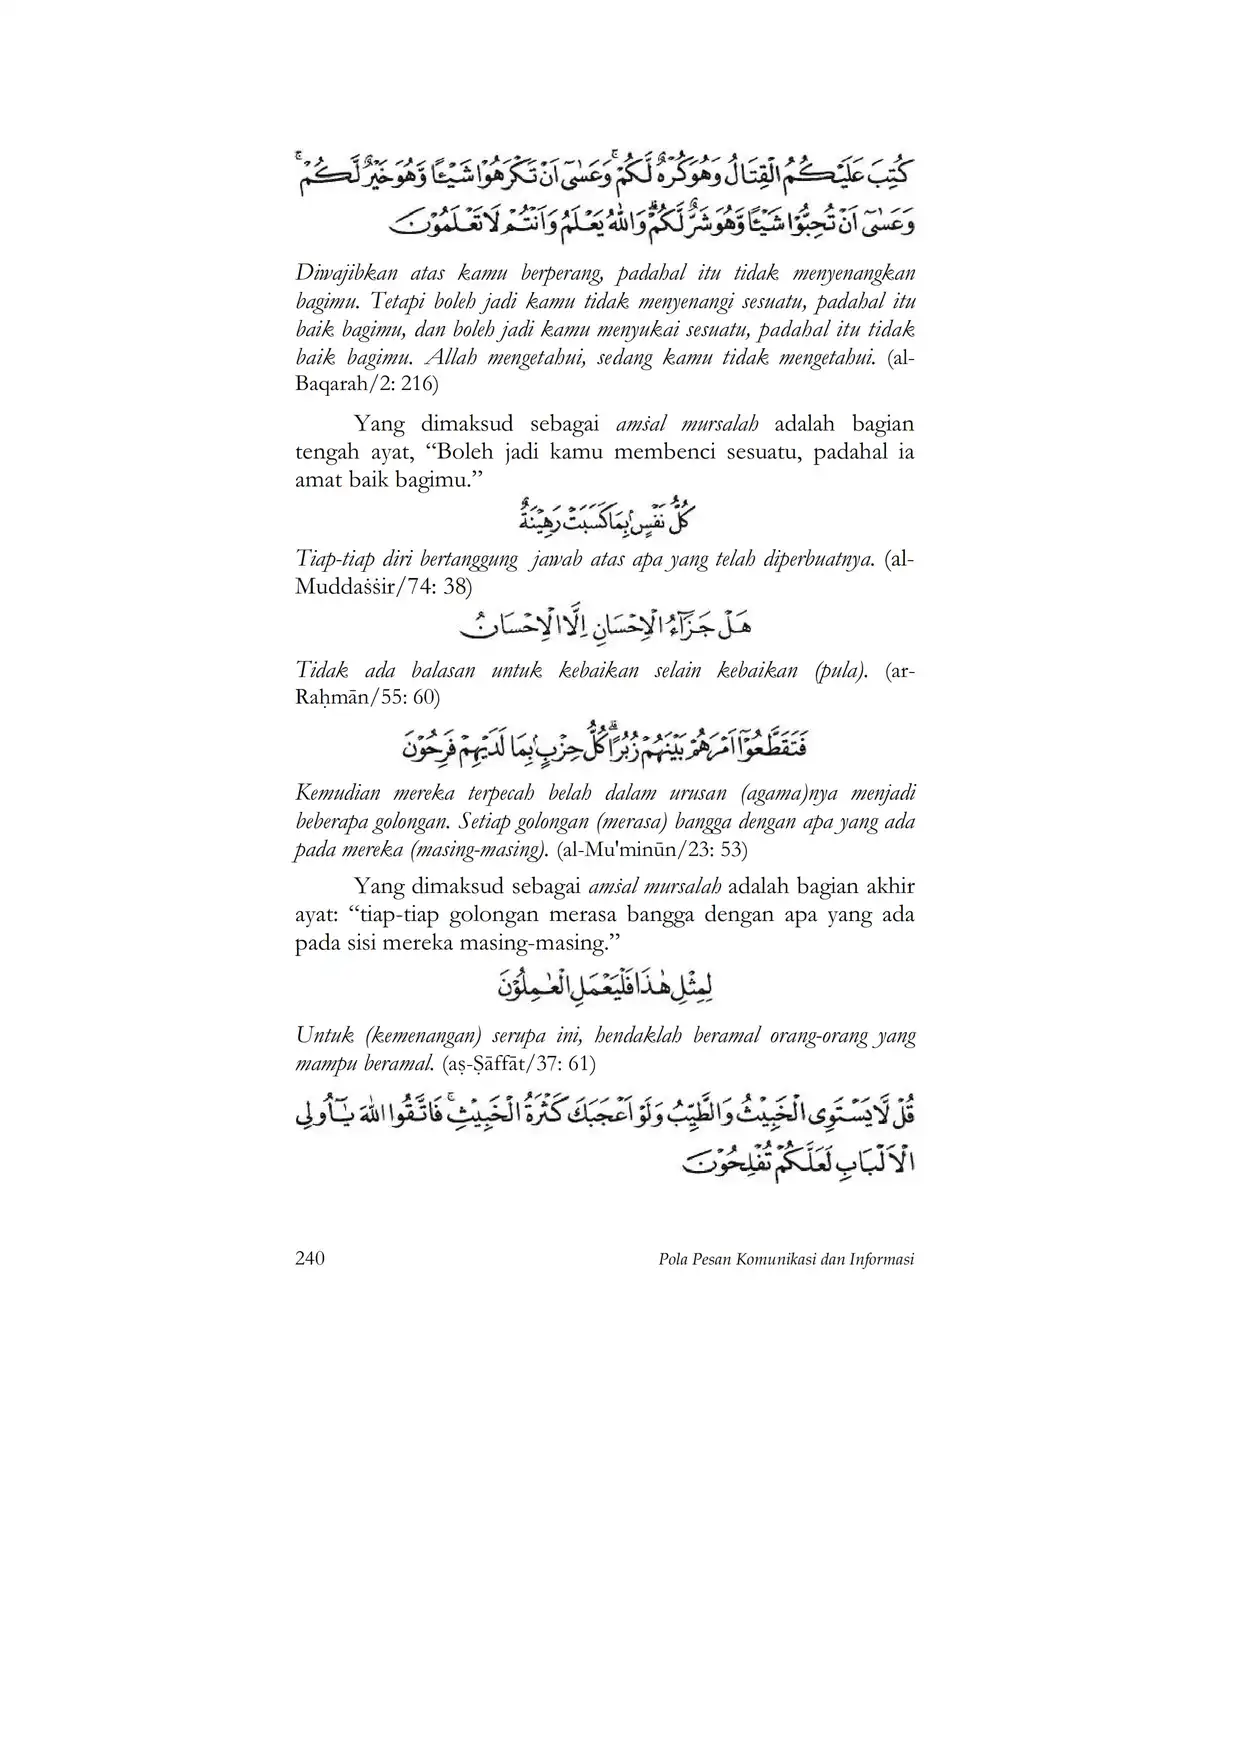 كُتِبَ عَلَيْكُمُ الْقِتَالُ وَهُوَ كُرْهٌ لَّكُمْ ۚ وَعَسٰٓى اَنْ تَكْرَهُوْا شَيْـًٔا وَّهُوَ خَيْرٌ لَّكُمْ ۚ
وَعَسٰٓى اَنْ تُحِبُّوْا شَيْـًٔا وَّهُوَ شَرٌّ لَّكُمْ ۗ وَاللّٰهُ يَعْلَمُ وَاَنْتُمْ لَا تَعْلَمُوْنَ
Diwajibkan atas kamu berperang, padahal itu tidak menyenangkan
bagimu. Tetapi boleh jadi kamu tidak menyenangi sesuatu, padahal itu
baik bagimu, dan boleh jadi kamu menyukai sesuatu, padahal itu tidak
baik bagimu. Allah mengetahui, sedang kamu tidak mengetahui. (al-
Baqarah/2: 216)
Yang dimaksud sebagai amṡal mursalah adalah bagian
tengah ayat, “Boleh jadi kamu membenci sesuatu, padahal ia
amat baik bagimu.”
كُلُّ نَفْسٍۢ بِمَا كَسَبَتْ رَهِيْنَةٌ
Tiap-tiap diri bertanggung jawab atas apa yang telah diperbuatnya. (al-
Muddaṡṡir/74: 38)
هَلْ جَزَاۤءُ الْاِحْسَانِ اِلَّا الْاِحْسَانُ
Tidak ada balasan untuk kebaikan selain kebaikan (pula). (ar-
Raḥmān/55: 60)
فَتَقَطَّعُوْٓا اَمْرَهُمْ بَيْنَهُمْ زُبُرًاۗ كُلُّ حِزْبٍۢ بِمَا لَدَيْهِمْ فَرِحُوْنَ
Kemudian mereka terpecah belah dalam urusan (agama)nya menjadi
beberapa golongan. Setiap golongan (merasa) bangga dengan apa yang ada
pada mereka (masing-masing). (al-Mu'minūn/23: 53)
Yang dimaksud sebagai amṡal mursalah adalah bagian akhir
ayat: “tiap-tiap golongan merasa bangga dengan apa yang ada
pada sisi mereka masing-masing.”
لِمِثْلِ هٰذَا فَلْيَعْمَلِ الْعٰمِلُوْنَ
Untuk (kemenangan) serupa ini, hendaklah beramal orang-orang yang
mampu beramal. (aṣ-Ṣāffāt/37: 61)
قُلْ لَّا يَسْتَوِى الْخَبِيْثُ وَالطَّيِّبُ وَلَوْ اَعْجَبَكَ كَثْرَةُ الْخَبِيْثِۚ فَاتَّقُوا اللّٰهَ يٰٓاُولِى
الْاَلْبَابِ لَعَلَّكُمْ تُفْلِحُوْنَ
240 Pola Pesan Komunikasi dan Informasi